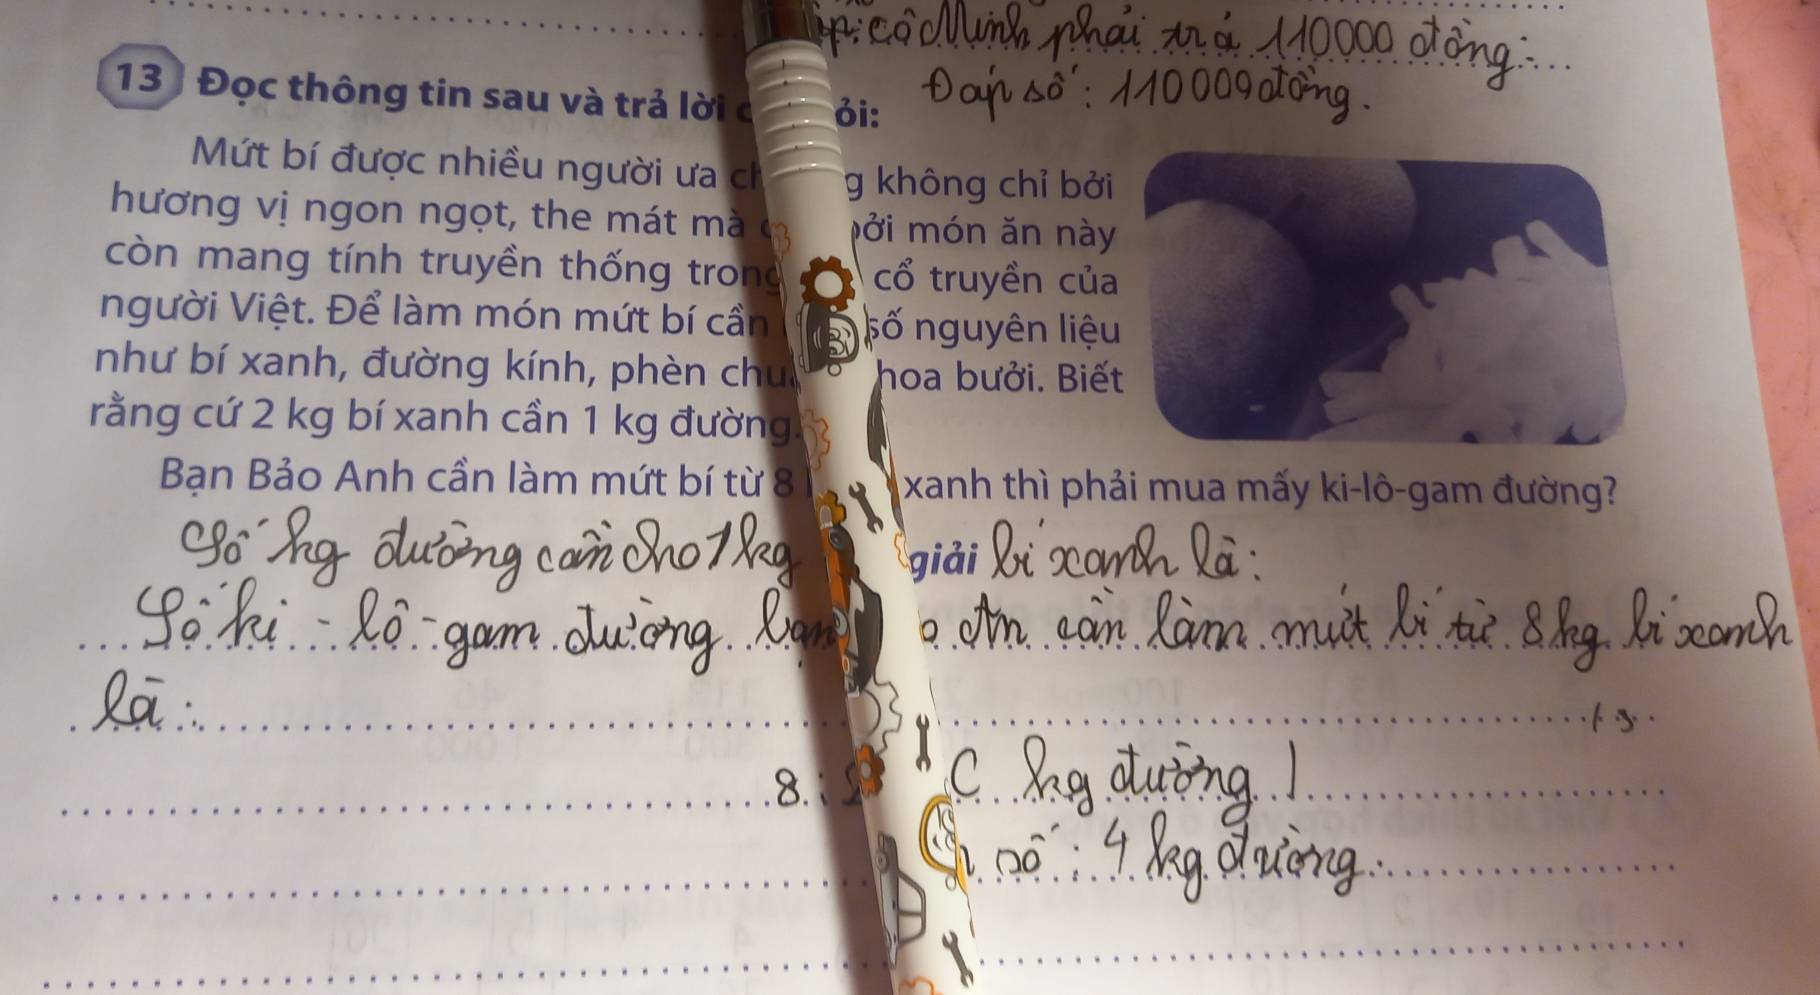 cô Minh phải trả 110000 đồng.
Đáp số: 110000 đồng.
13 Đọc thông tin sau và trả lời ỏi:
Mứt bí được nhiều người ưa ch g không chỉ bởi
hương vị ngon ngọt, the mát mà ởi món ăn này
còn mang tính truyền thống trong cổ truyền của
người Việt. Để làm món mứt bí cần số nguyên liệu
như bí xanh, đường kính, phèn chu hoa bưởi. Biết
rằng cứ 2 kg bí xanh cần 1 kg đường.
Bạn Bảo Anh cần làm mứt bí từ 8 xanh thì phải mua mấy ki-lô-gam đường?
giải
Số kg đường cần cho 1 kg bí xanh là:
Số ki-lô-gam đường bạn o An cần làm mứt bí từ 8 kg bí xanh
là:
8 : kg đường)
số: 4 kg đường.